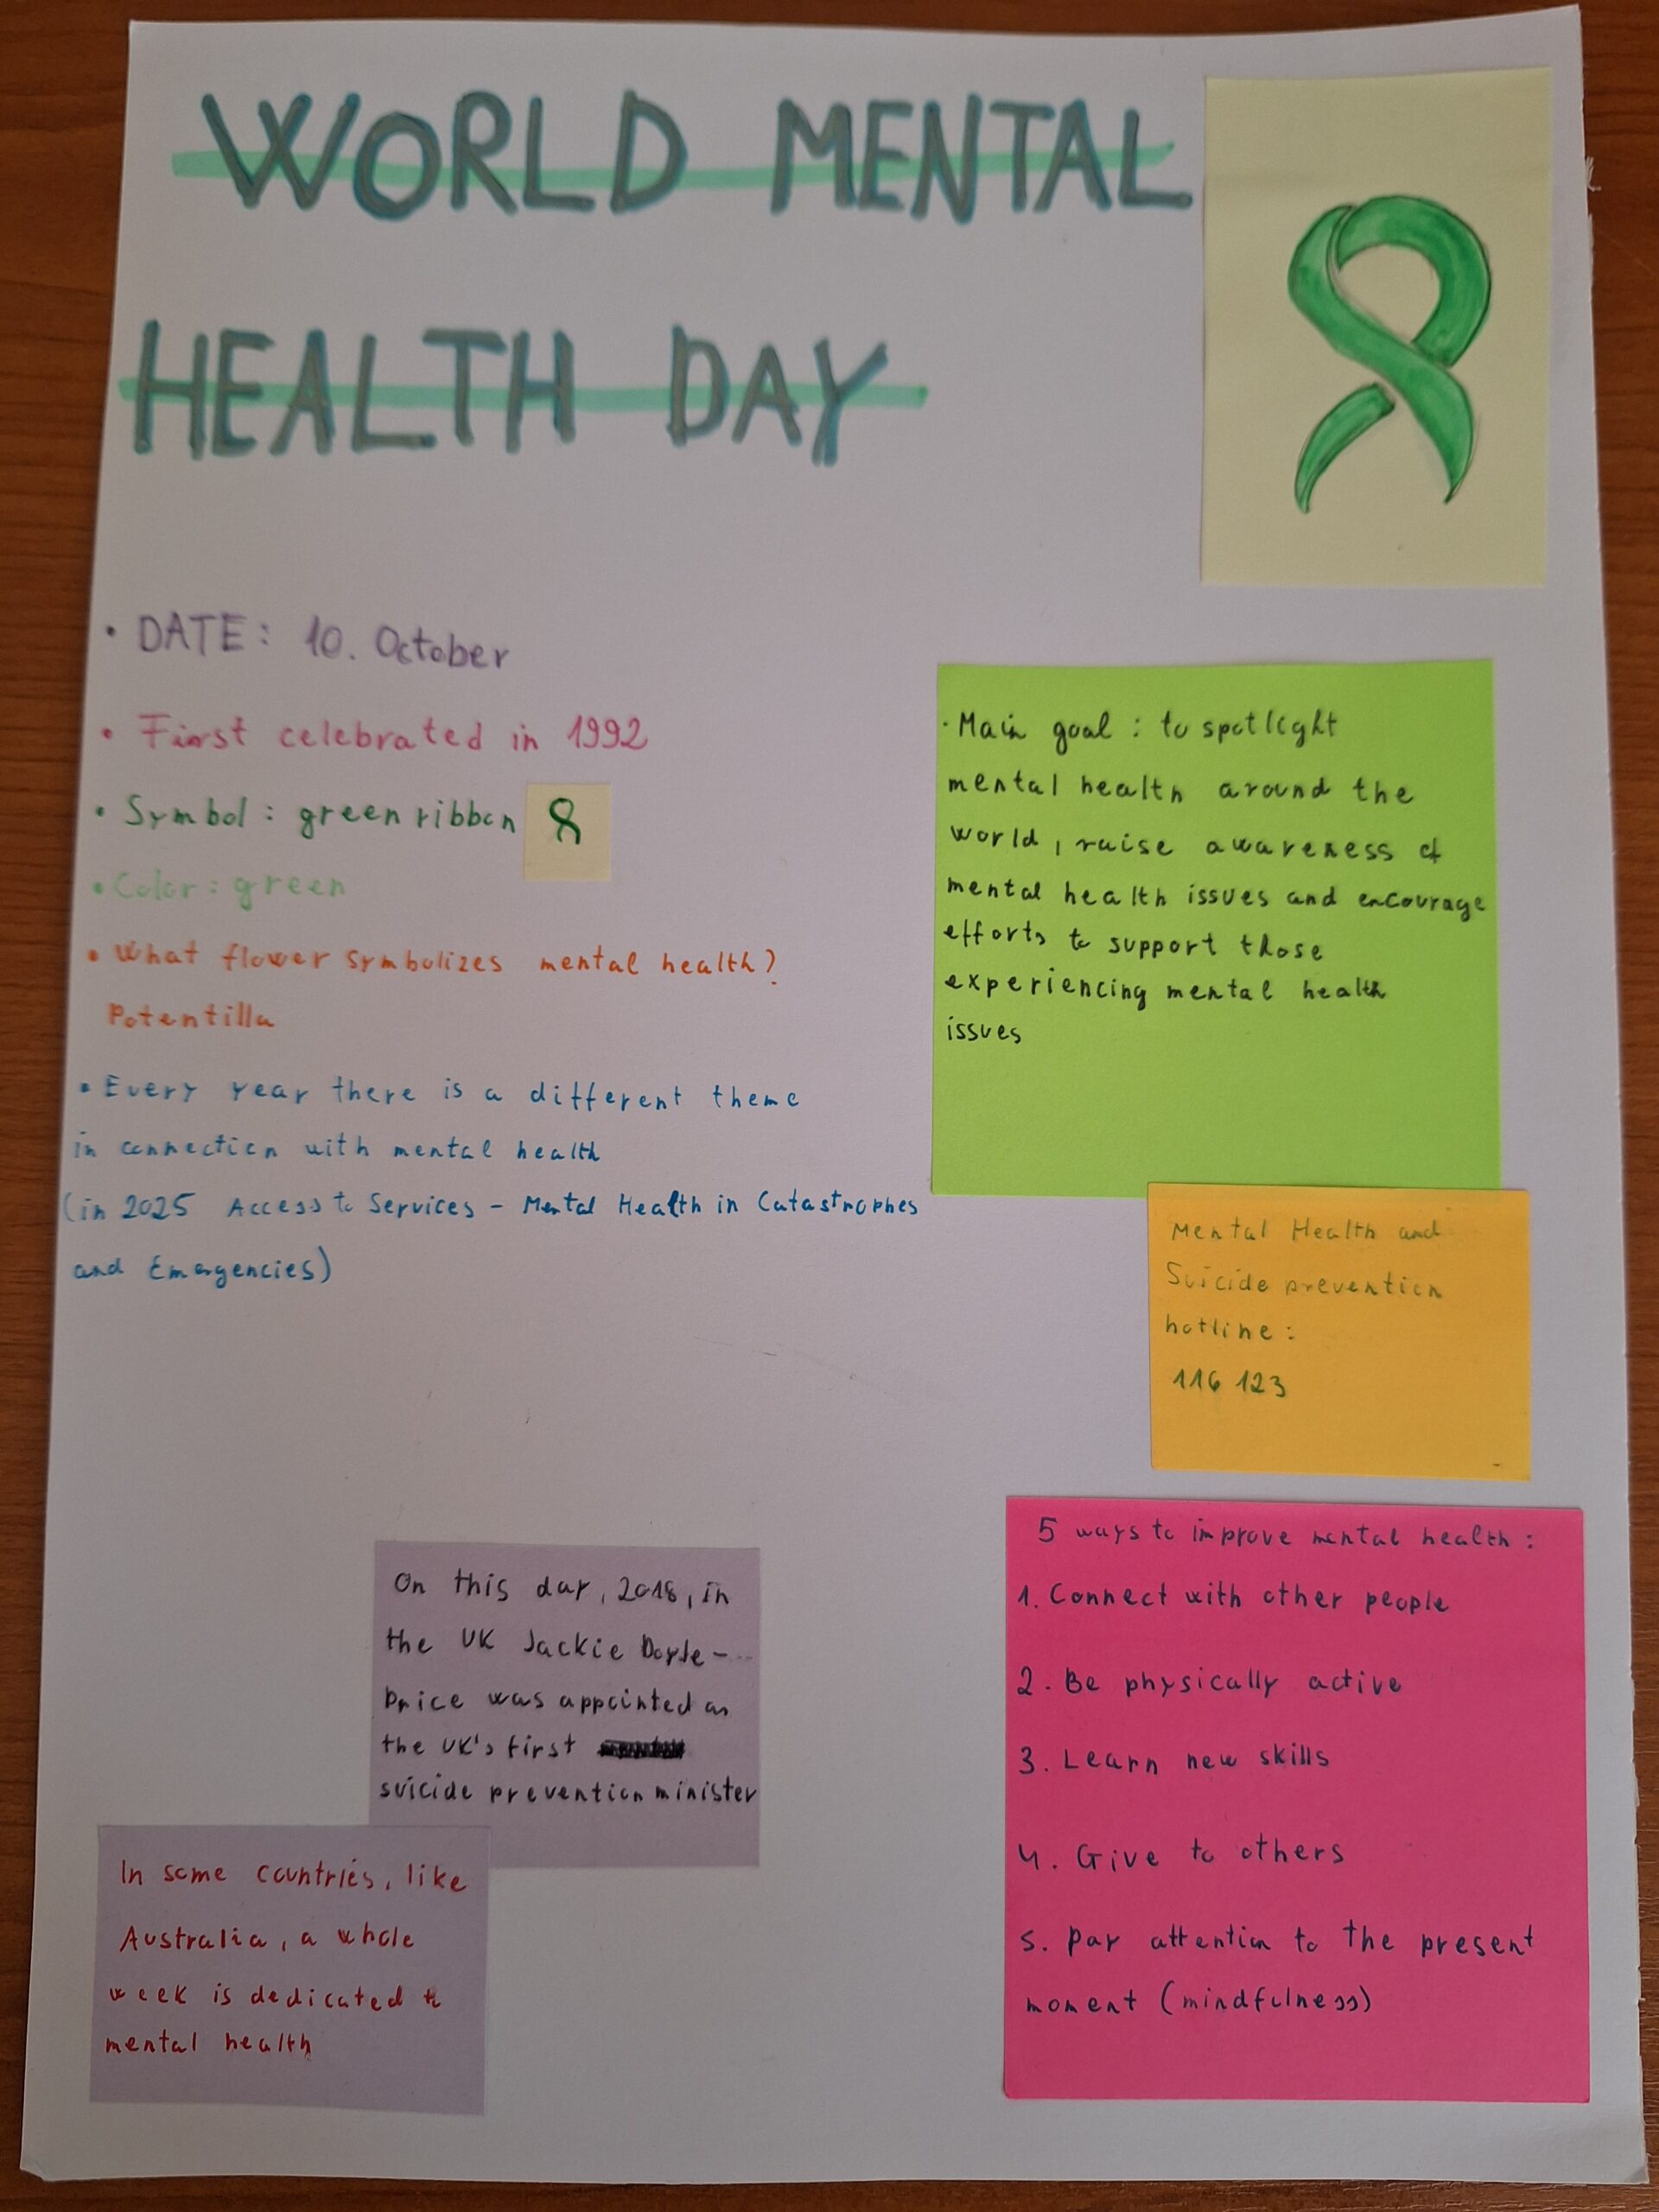 WORLD MENTAL
HEALTH DAY
• DATE: 10. October
• First celebrated in 1992
• Symbol: green ribbon
• Color: green
• What flower symbolizes mental health?
Potentilla
• Every year there is a different theme
in connection with mental health
(in 2025 Access to Services - Mental Health in Catastrophes
and Emergencies)
· Main goal: to spotlight
mental health around the
world, raise awareness of
mental health issues and encourage
efforts to support those
experiencing mental health
issues
Mental Health and
Suicide prevention
hotline:
116 123
On this day, 2018, in
the UK Jackie Doyle-
Price was appointed as
the UK's first
suicide prevention minister
In some countries, like
Australia, a whole
week is dedicated to
mental health
5 ways to improve mental health:
1. Connect with other people
2. Be physically active
3. Learn new skills
4. Give to others
5. Pay attention to the present
moment (mindfulness)